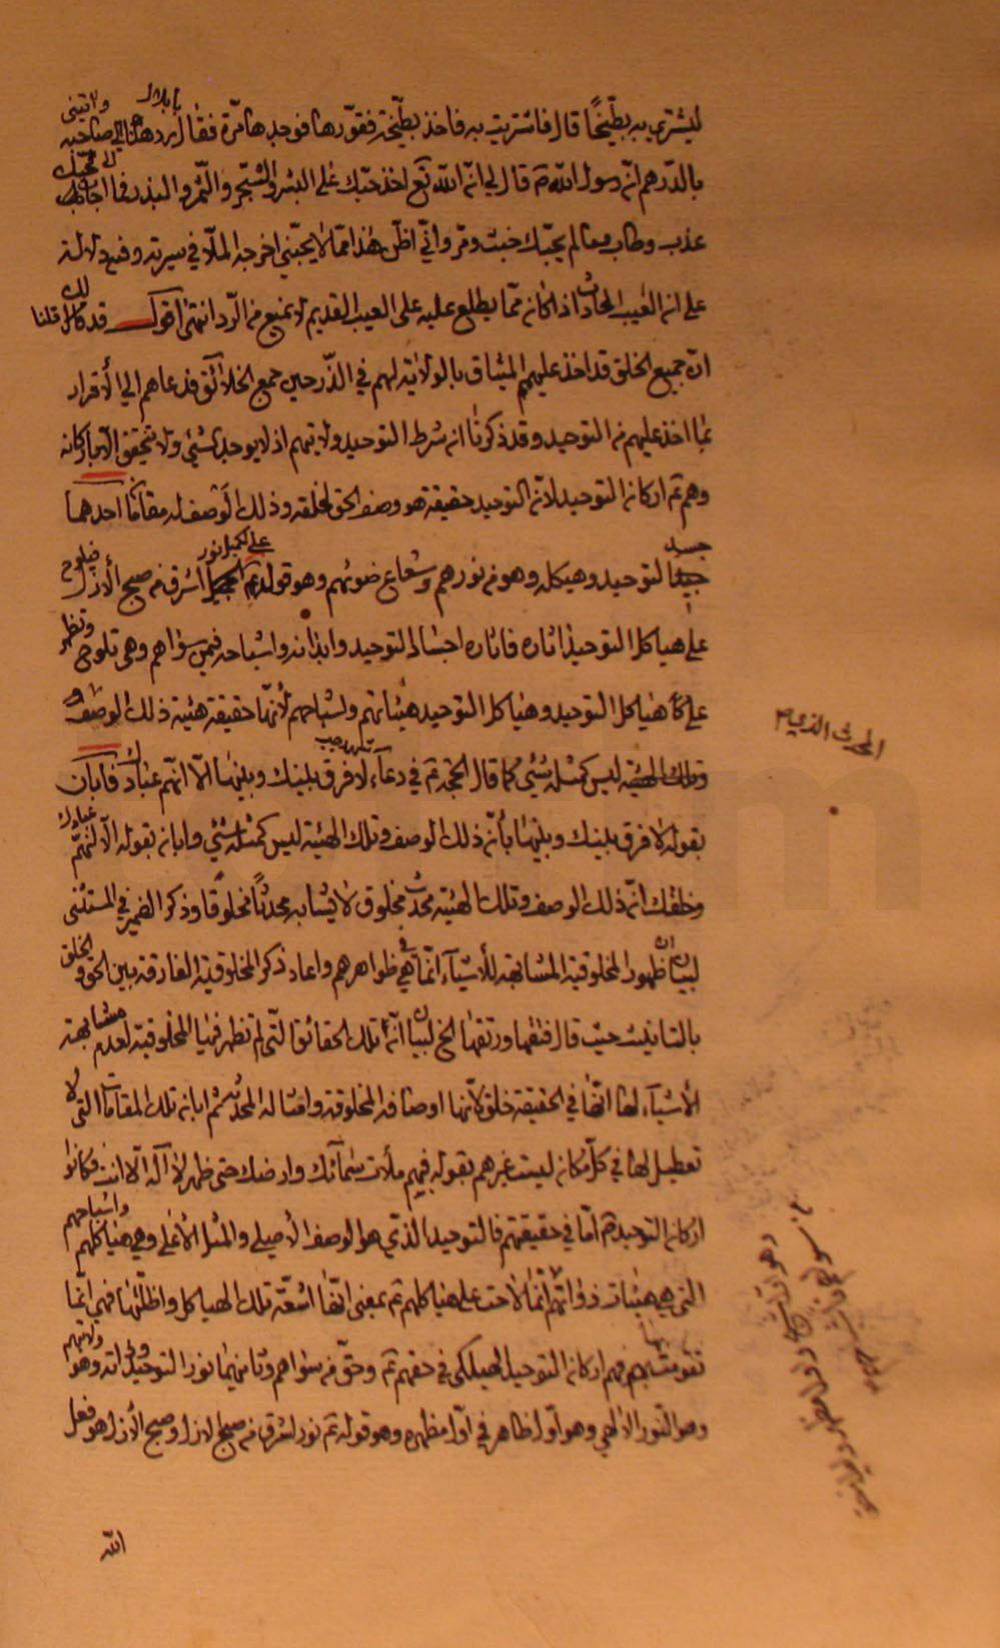 ليشتري به بطّيخًا قال فاشتريت به فاخذ بطّيخة فقوّرها فوجدها مرّة فقال يا بلال ردها الي صاحبه وائتنى
بالدّرهم انّ رسول اللّه ص قال لي انّ اللّه تع اخذ حبّك على البشر والشّجر والثّمر والبذر فما اجاب الى حبّك
عذب وطاب وما لم يجبك خبث ومرّ وانّي اظنّ هذا ممّا لا يحبّني اخرجه الملّا في سيرته وفيه دلالة
على ان العيب الحادث اذا كان ممّا يطلع عليه على العيب القديم لا يمنع من الرّد انتهى اقول قد قلنا
انّ جميع الخلق قد اخذ عليهم الميثاق بالولاية لهم في الذّر حين جمع الخلائق فدعاهم الى الأقرار
بما اخذ عليهم من التوحيد وقد ذكرنا ان شرط التوحيد ولايتهم اذ لا يوجد شئي ولا يتحقق الّا باركانه
وهم ع اركان التوحيد لانّ التوحيد حقيقة هو وصف الحق لخلقه وذلك الوصف له مقامان احدهما
جسد التوحيد وهيكله وهو من نورهم وشعاع ضوئهم وهو قول على لكميل نور اشرق من صبح الأزل فيلوح
على هياكل التوحيد اثاره فاثاره اجساد التوحيد وابدانه واشباحه فيمن سواهم وهي تلوح وتظهر
على هياكل التوحيد وهياكل التوحيد هيئاتهم واشباحهم لأنّها حقيقة هيئة ذلك الوصف
وتلك الهيئة ليس كمثله شئي كما قال الحجة ع في دعاء رجب لا فرق بينك وبينها الّا انّهم عبادك فابان
بقوله لا فرق بينك وبينها بأنّ ذلك الوصف وتلك الهيئة ليس كمثله شئي وابان بقوله الّا انّهم عبادك
وخلقك انّ ذلك الوصف وتلك الهيئة محدث مخلوق لا يشابه محدثا مخلوقا وذكر الضمير في المستثنى
لبيان ان ظهور المخلوقية المشابهة للأشياء انّما هي في ظواهرهم واعاد ذكر المخلوقية الفارقة بين الحق والخلق
بالتانيث حيث قال فتقها ورتقها الخ لبيان انّ تلك الحقائق الّتي لم تظهر فيها المخلوقية لعدم مشابهة
الأشياء لها انّها في الحقيقة خلق لأنّها اوصافه المخلوقة وامثاله المحدثة ثم ابان تلك المقامات التى لا
تعطيل لها في كلّ مكان ليست غيرهم بقوله فبهم ملأت سمآئك وارضك حتى ظهر لا اله الّا انت فكانوا
اركان التوحيد ع امّا في حقيقتهم فالتوحيد الذّي هو الوصف الأصلي والمثل الأعلى وهي هياكلهم واشباحهم
التي هي هيئات ذواتهم انّما لاحت على هياكلهم ع بمعنى انّها اشعّة تلك الهياكل واظلّتها فهي انّما
تقومت بهم فهم اركان التوحيد الهيكلى في حقهم ع وحقّ من سواهم وثانيهما نور التوحيد وذاته وهو ولايتهم
وهو النّور الالهي وهو اوّل ظاهر في اوّل مظهر وهو قوله ع نور اشرق من صبح الازل وصبح الأزل هو فعل
اللّه
المحدث الذي ص